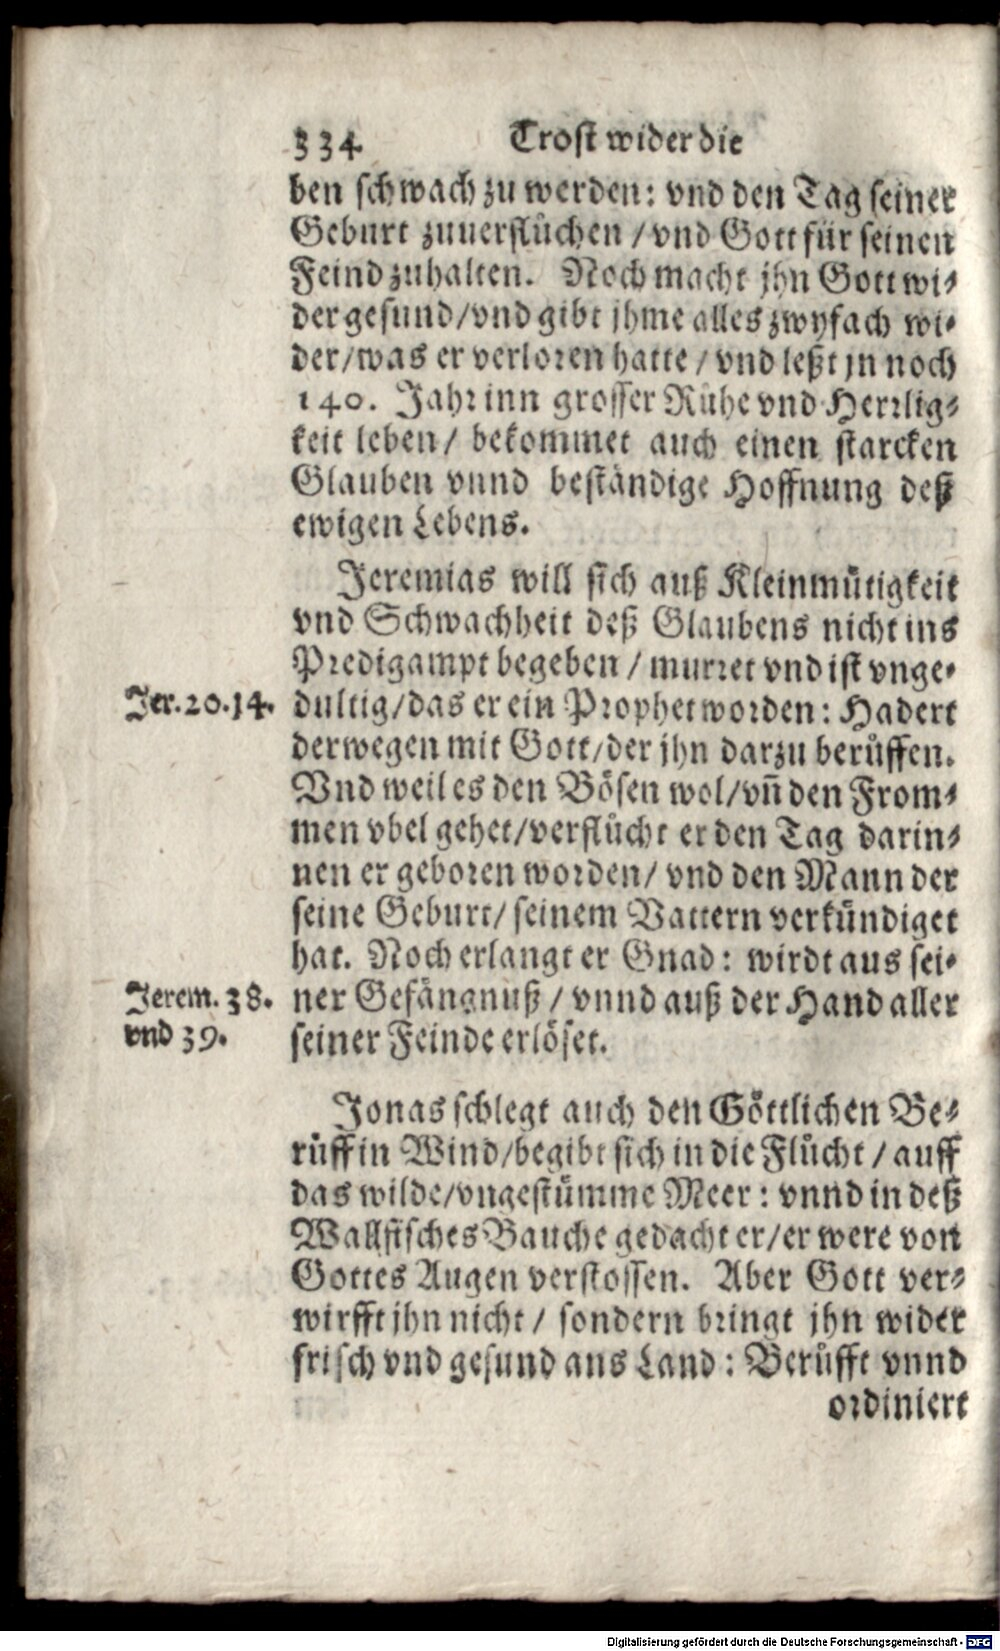 334 Trost wider die
ben schwach zu werden: vnd den Tag seiner
Geburt zuuerflůchen / vnd Gott für seinen
Feind zuhalten. Noch macht jhn Gott wi-
der gesund/vnd gibt jhme alles zwyfach wi-
der/was er verloren hatte / vnd leßt jn noch
140. Jahr inn grosser Růhe vnd Herrlig-
keit leben/ bekommet auch einen starcken
Glauben vnnd beständige Hoffnung deß
ewigen Lebens.
Jeremias will sich auß Kleinmůtigkeit
vnd Schwachheit deß Glaubens nicht ins
Predigampt begeben / murret vnd ist vnge-
Jer. 20. 14.
dultig/das er ein Prophet worden: Hadert
derwegen mit Gott/der jhn darzu berůffen.
Vnd weil es den Bösen wol/vñ den From-
men vbel gehet/verflůcht er den Tag darin-
nen er geboren worden/ vnd den Mann der
seine Geburt/ seinem Vattern verkündiget
hat. Noch erlangt er Gnad: wirdt aus sei-
Jerem. 38.
vnd 39.
ner Gefängnuß / vnnd auß der Hand aller
seiner Feinde erlöset.
Jonas schlegt auch den Göttlichen Be-
růff in Wind/begibt sich in die Flůcht / auff
das wilde/vngestümme Meer: vnnd in deß
Wallfisches Bauche gedacht er/er were von
Gottes Augen verstossen. Aber Gott ver-
wirfft jhn nicht / sondern bringt jhn wider
frisch vnd gesund ans Land: Berůfft vnnd
ordiniert
Digitalisierung gefördert durch die Deutsche Forschungsgemeinschaft - DFG